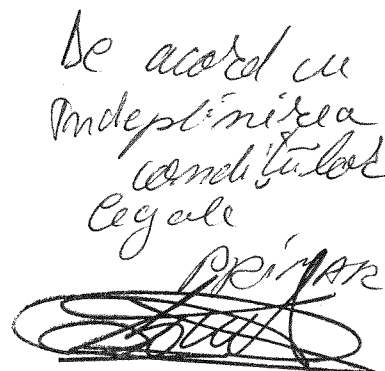 De acord cu
îndeplinirea
condițiilor
legale
PRIMAR